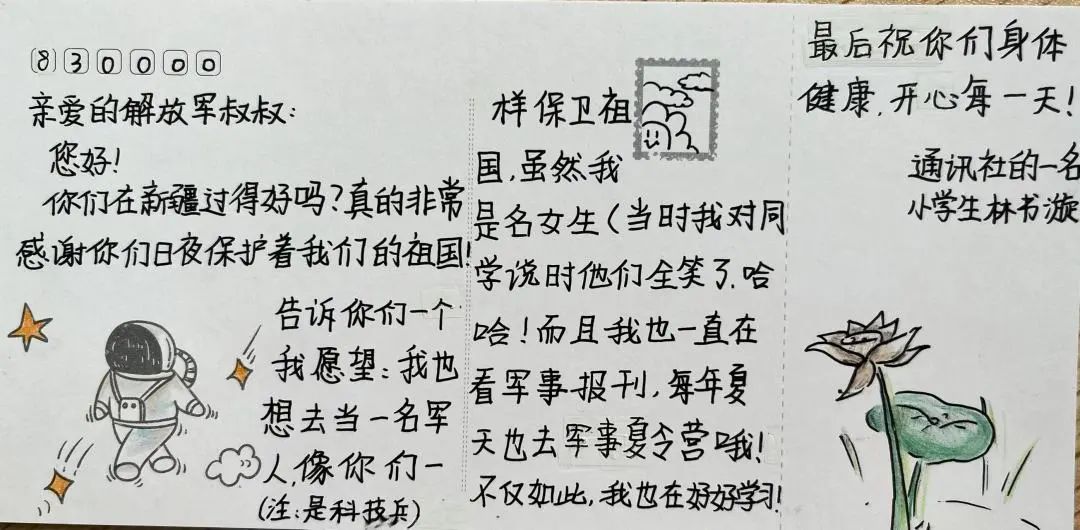 830000
亲爱的解放军叔叔:
您好!
你们在新疆过得好吗?真的非常
感谢你们日夜保护着我们的祖国!
告诉你们一个
我愿望:我也
想去当一名军
人,像你们一
(注:是科技兵)
样保卫祖
国,虽然我
是名女生(当时我对同
学说时他们全笑了,哈
哈!而且我也一直在
看军事报刊,每年夏
天也去军事夏令营哦!
不仅如此,我也在好好学习!
最后祝你们身体
健康,开心每一天!
通讯社的一名
小学生林书漩